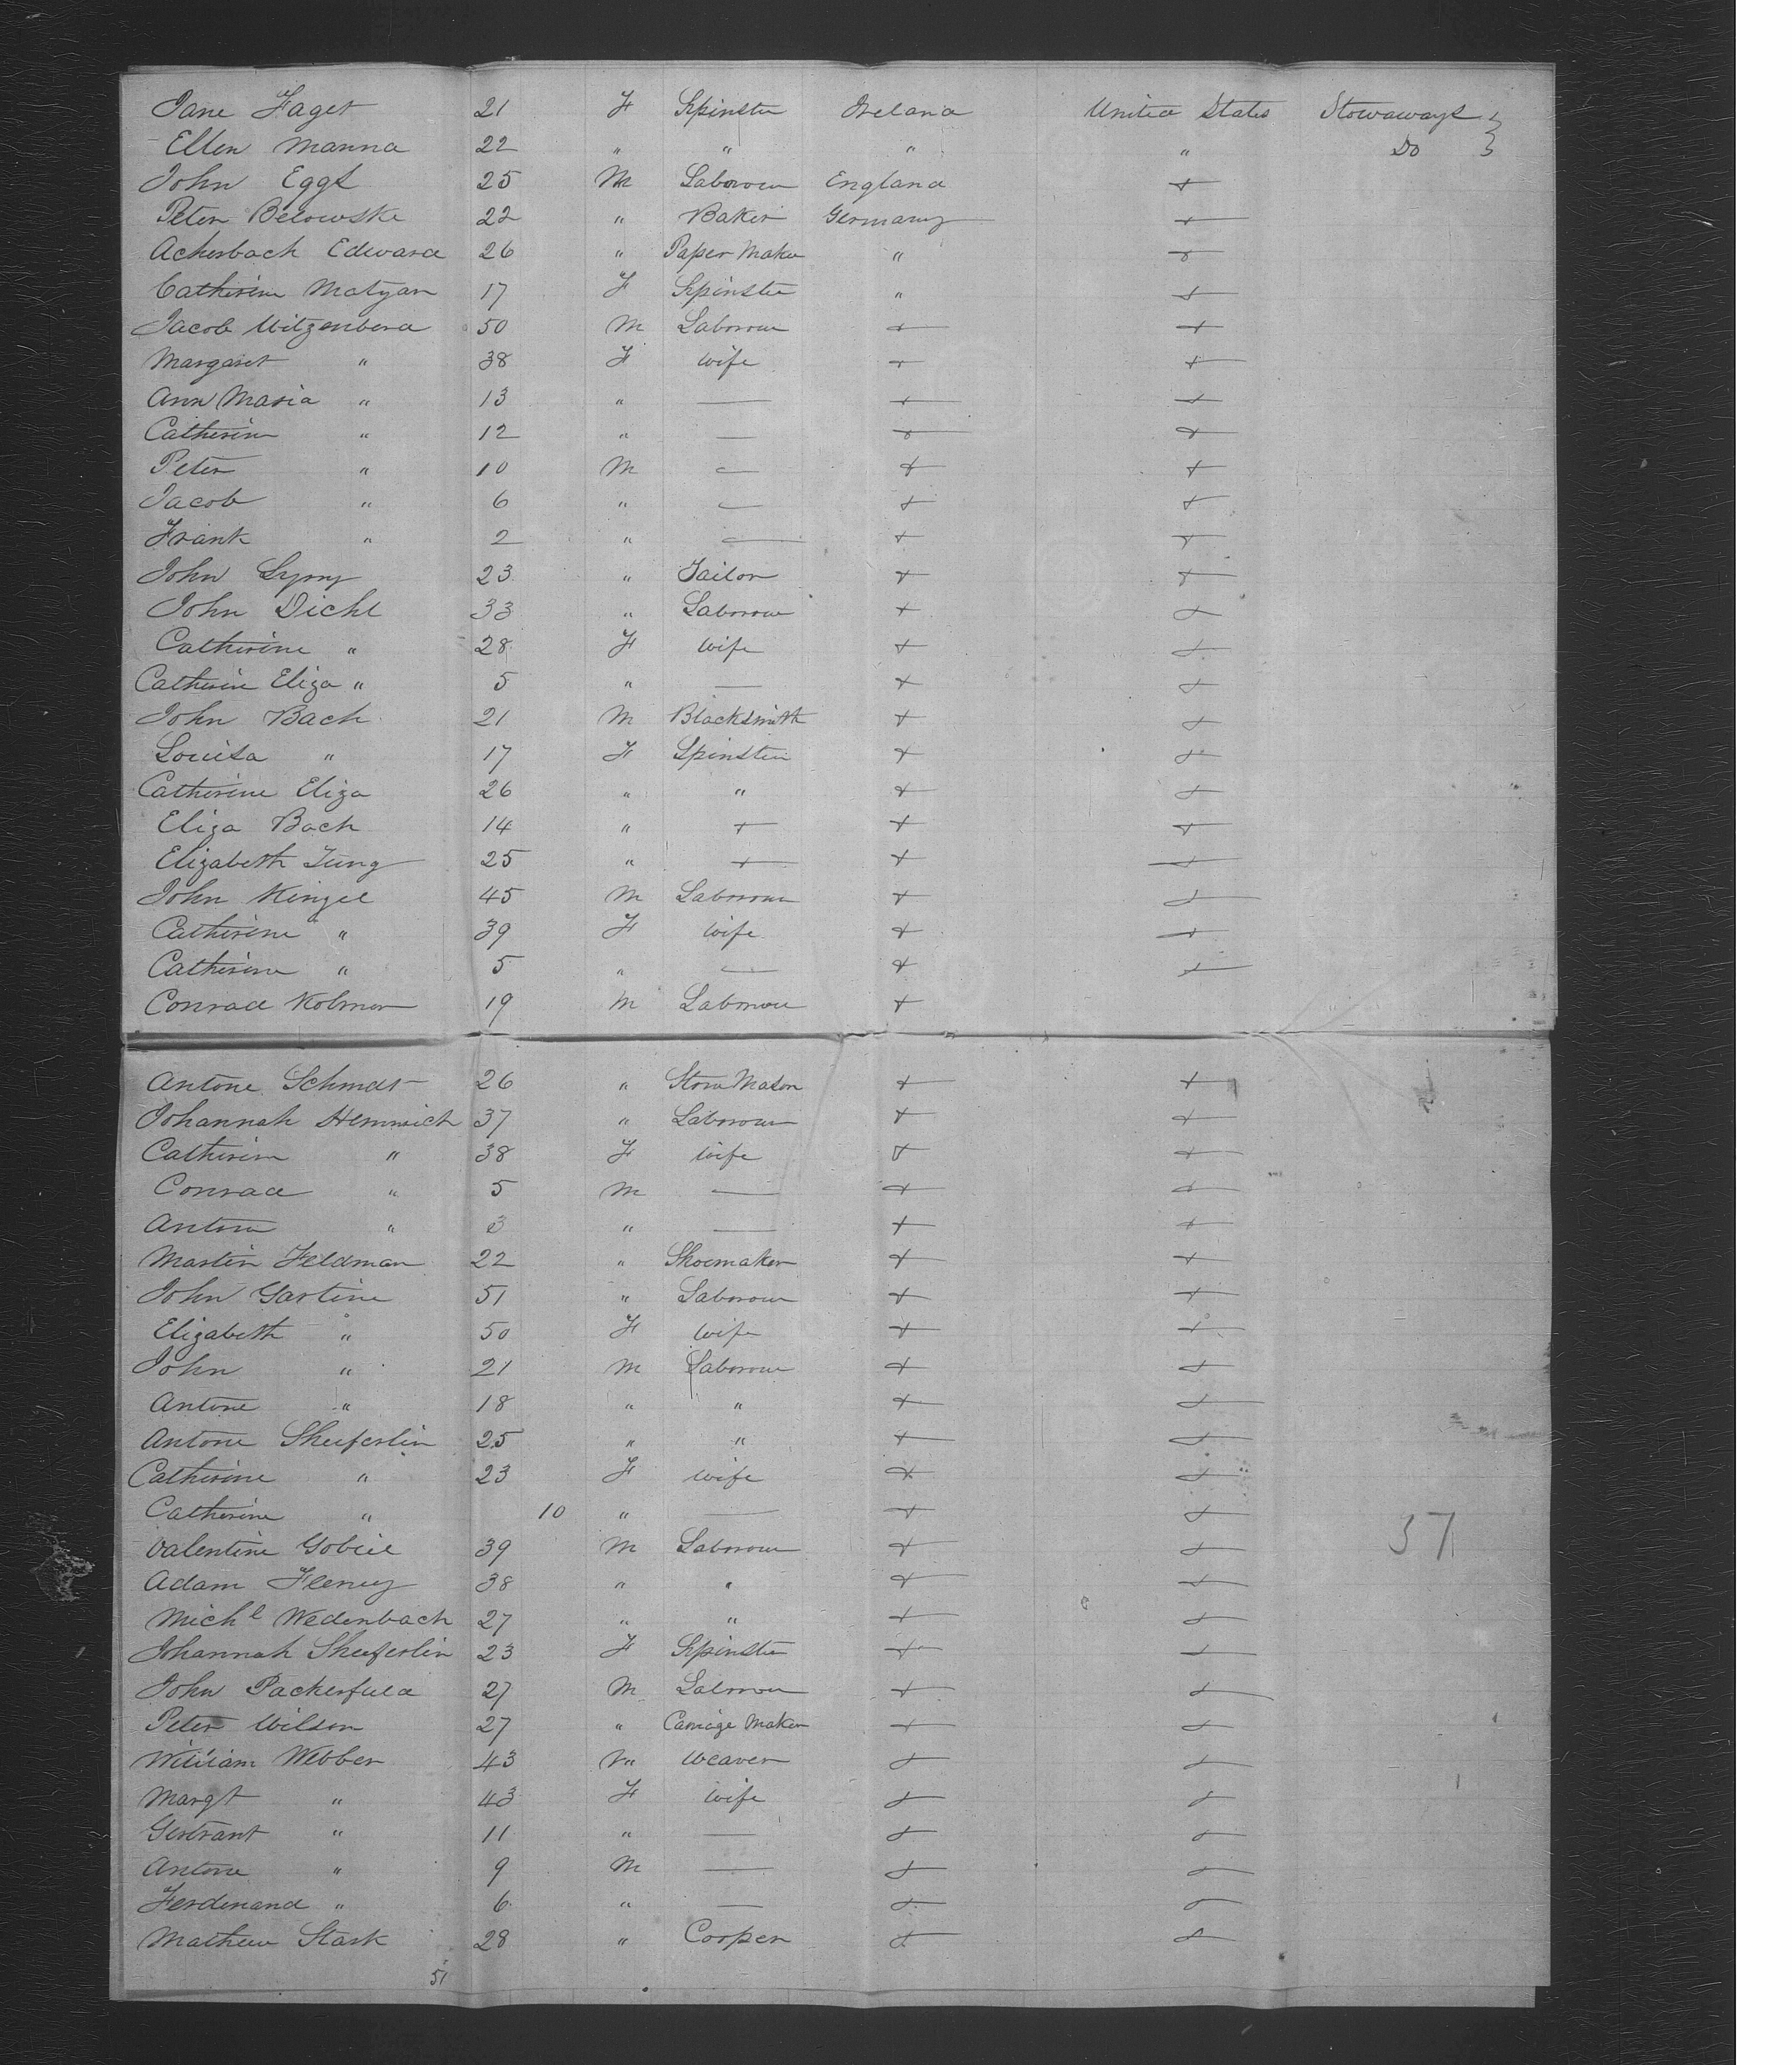 Jane Faget 21 F Spinster Ireland United States Stowaways }
Ellen Manna 22 " " " " Do }
John Eggt 25 M Laborour England +
Peter Belowske 22 " Baker Germany +
Ackerbach Edward 26 " Paper Maker " +
Catherine Matyan 17 F Spinster " +
Jacob Witzenberd 50 M Laborour + +
Margaret " 38 F Wife + +
Ann Maria " 13 " — + +
Catherine " 12 " — + +
Peter " 10 M — + +
Jacob " 6 " — + +
Frank " 2 " — + +
John 23 " Tailor + +
John Diehl 33 " Laborour + +
Catherine " 28 F Wife + +
Catherine Eliza " 5 " — + +
John Bach 21 M Blacksmith + +
Louisa " 17 F Spinster + +
Catherine Eliza 26 " " + +
Eliza Bach 14 " + + +
Elizabeth Jung 25 " + + +
John Kinzel 45 M Laborour + +
Catherine " 39 F Wife + +
Catherine " 5 " — + +
Conrad Kolmer 19 M Laborour +
Antone Schmdt 26 " Stone Mason + +
Johannah Hemmrich 37 " Laborour + +
Catherine " 38 F Wife + +
Conrad " 5 M — + +
Antone " 3 " — + +
Martin Feldman 22 " Shoemaker + +
John Gartine 51 " Laborour + +
Elizabeth " 50 F Wife + +
John " 21 M Laborour + +
Antone " 18 " " + +
Antone Sheiferlin 25 " " + +
Catherine " 23 F Wife + +
Catherine " 10 " — + +
Valentine Gobiel 39 M Laborour + + 37
Adam Fleney 38 " " + +
Michl Wedenbach 27 " " + +
Johannah Sheiferlin 23 F Spinster + +
John Packerfuld 27 M Laborour + +
Peter Wilson 27 " Carriage Maker + +
William Webber 43 " Weaver + +
Margt " 43 F Wife + +
Gertrant " 11 " — + +
Antone " 9 M — + +
Ferdinand " 6 " — + +
Mathew Stark 28 " Cooper + +
51